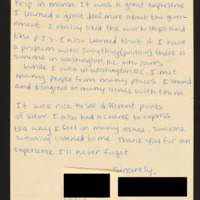 trip in march. It was a great experience
I learned a great deal more about the gover-
nment. I really liked the workshops and
the p.j.s. I also learned that if I have
a problem with something (politics) there is
someone in washington, D.C. who cares.
while I was in Washington D.C. I met
many people from many places. I shared
and disagreed on many issues with them.
It was nice to see different points
of view. I also had a chance to express
the way I feel on many issues. Someone
actually listened to me. Thank you for an
experience I'll never forget.
Sincerely,